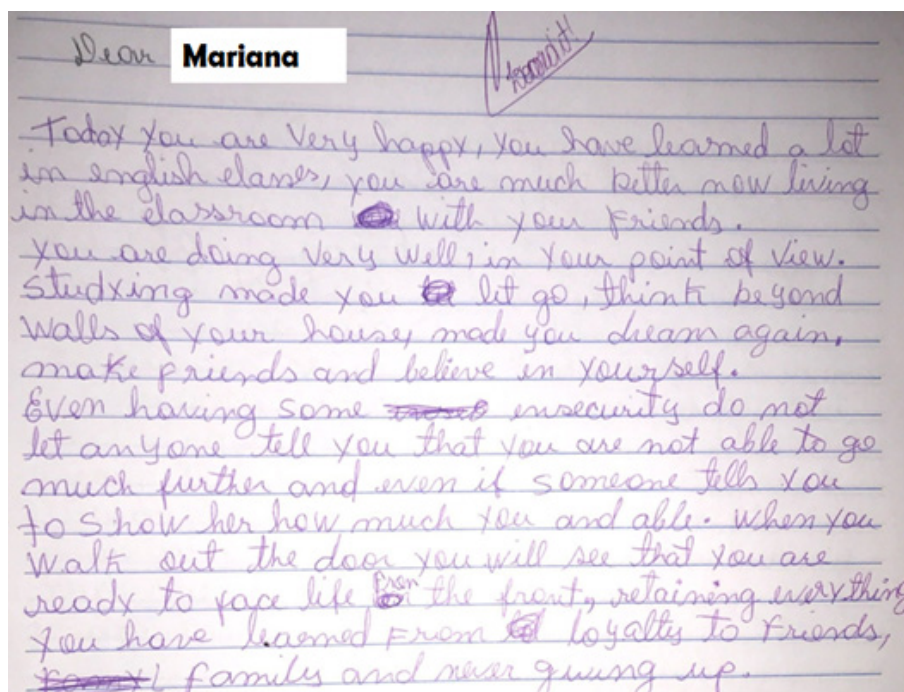 Dear Mariana
Today you are very happy, you have learned a lot
in english classes, you are much better now living
in the classroom with your friends.
you are doing very well, in your point of view.
Studying made you let go, think beyond
walls of your house, made you dream again,
make friends and believe in yourself.
Even having some insecurity do not
let anyone tell you that you are not able to go
much further and even if someone tells you
to show her how much you and able. when you
walk out the door you will see that you are
ready to face life from the front, retaining everything
you have learned from loyalty to friends,
family and never giving up.